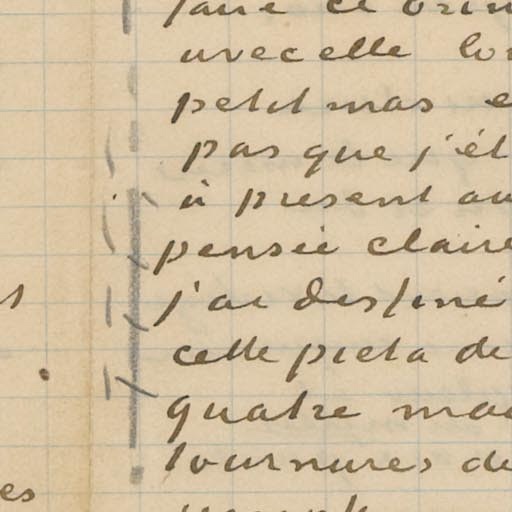 faire et
avec elle
petit mas e
pas que j'ét
à présent au
pensée claire
j'ai dessiné
cette pieta de
quatre
tournures de
es